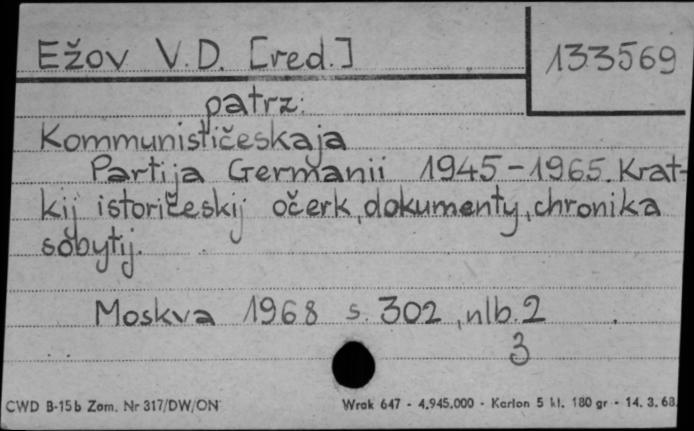 Ežov V.D. [red.]
133569
patrz:
Kommunističeskaja
Partija Germanii 1945-1965. Krat-
kij istoričeskij očerk, dokumenty, chronika
sobytij.
Moskva 1968 s. 302, nlb. 2
3
CWD B-15b Zam. Nr 317/DW/ON
Wrak 647 - 4.945.000 - Karton 5 kl. 180 gr - 14. 3. 68.